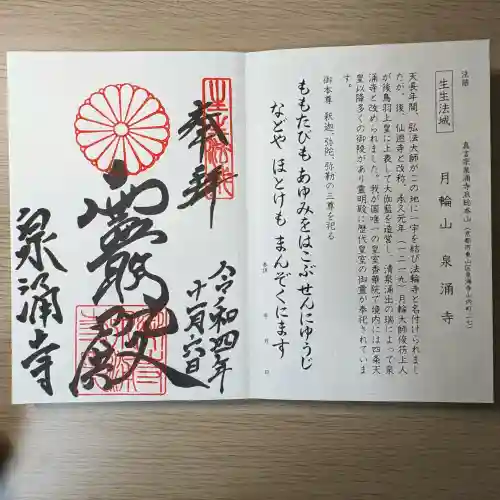 法語
生生法城
真言宗泉涌寺派総本山（京都市東山区泉涌寺山内町二七）
月輪山 泉涌寺
天長年間、弘法大師がこの地に一宇を結び法輪寺と名付けられまし
たが、後、仙遊寺と改称、承久元年（一二一九）月輪大師俊芿上人
が後鳥羽上皇に上表して大伽藍を造営し、清泉涌出の瑞によって泉
涌寺と改められました。我が国唯一の皇室香華院で境内には四条天
皇以降多くの御陵があり霊明殿に歴代皇室の御霊が奉祀されていま
す。
御本尊 釈迦、弥陀、弥勒の三尊を祀る
ももたびも あゆみをはこぶ せんにゆうじ
などや ほとけも まんぞくにます
奉拝 年 月 日
奉拝
令和四年
十一月六日
霊明殿
泉涌寺